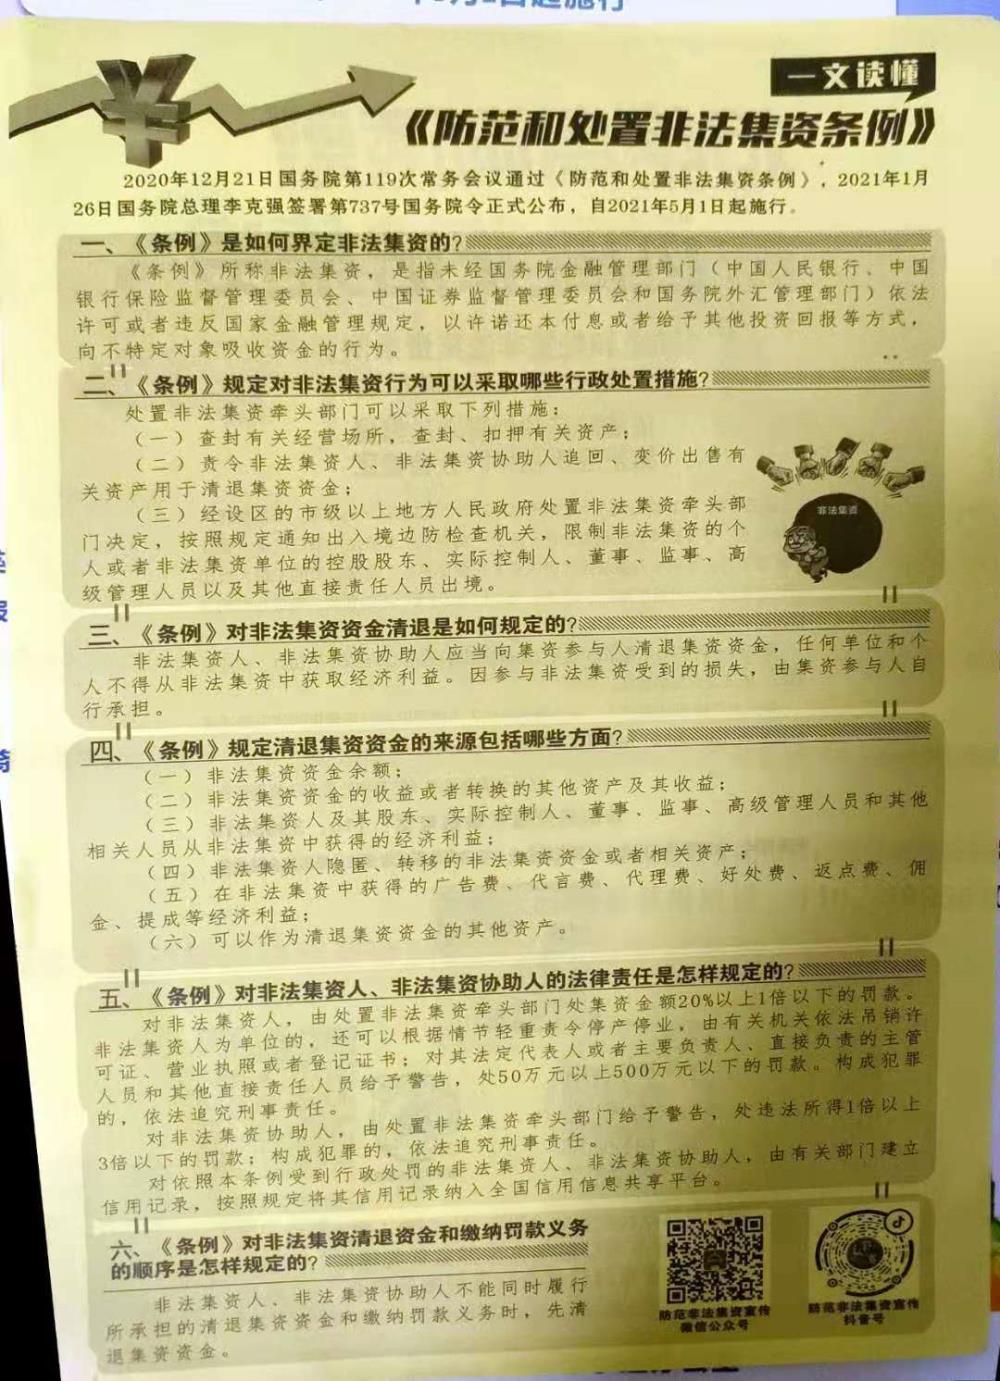 一文读懂
《防范和处置非法集资条例》
2020年12月21日国务院第119次常务会议通过《防范和处置非法集资条例》，2021年1月
26日国务院总理李克强签署第737号国务院令正式公布，自2021年5月1日起施行。
一、《条例》是如何界定非法集资的？
《条例》所称非法集资，是指未经国务院金融管理部门（中国人民银行、中国
银行保险监督管理委员会、中国证券监督管理委员会和国务院外汇管理部门）依法
许可或者违反国家金融管理规定，以许诺还本付息或者给予其他投资回报等方式，
向不特定对象吸收资金的行为。
二、《条例》规定对非法集资行为可以采取哪些行政处置措施？
处置非法集资牵头部门可以采取下列措施：
（一）查封有关经营场所，查封、扣押有关资产；
（二）责令非法集资人、非法集资协助人追回、变价出售有
关资产用于清退集资资金；
（三）经设区的市级以上地方人民政府处置非法集资牵头部
门决定，按照规定通知出入境边防检查机关，限制非法集资的个
人或者非法集资单位的控股股东、实际控制人、董事、监事、高
级管理人员以及其他直接责任人员出境。
非法集资
三、《条例》对非法集资资金清退是如何规定的？
非法集资人、非法集资协助人应当向集资参与人清退集资资金，任何单位和个
人不得从非法集资中获取经济利益。因参与非法集资受到的损失，由集资参与人自
行承担。
四、《条例》规定清退集资资金的来源包括哪些方面？
（一）非法集资资金余额；
（二）非法集资资金的收益或者转换的其他资产及其收益；
（三）非法集资人及其股东、实际控制人、董事、监事、高级管理人员和其他
相关人员从非法集资中获得的经济利益；
（四）非法集资人隐匿、转移的非法集资资金或者相关资产；
（五）在非法集资中获得的广告费、代言费、代理费、好处费、返点费、佣
金、提成等经济利益；
（六）可以作为清退集资资金的其他资产。
五、《条例》对非法集资人、非法集资协助人的法律责任是怎样规定的？
对非法集资人，由处置非法集资牵头部门处集资金额20%以上1倍以下的罚款。
非法集资人为单位的，还可以根据情节轻重责令停产停业，由有关机关依法吊销许
可证、营业执照或者登记证书；对其法定代表人或者主要负责人、直接负责的主管
人员和其他直接责任人员给予警告，处50万元以上500万元以下的罚款。构成犯罪
的，依法追究刑事责任。
对非法集资协助人，由处置非法集资牵头部门给予警告，处违法所得1倍以上
3倍以下的罚款；构成犯罪的，依法追究刑事责任。
对依照本条例受到行政处罚的非法集资人、非法集资协助人，由有关部门建立
信用记录，按照规定将其信用记录纳入全国信用信息共享平台。
六、《条例》对非法集资清退资金和缴纳罚款义务
的顺序是怎样规定的？
非法集资人、非法集资协助人不能同时履行
所承担的清退集资资金和缴纳罚款义务时，先清
退集资资金。
防范非法集资宣传
微信公众号
防范非法集资宣传
抖音号